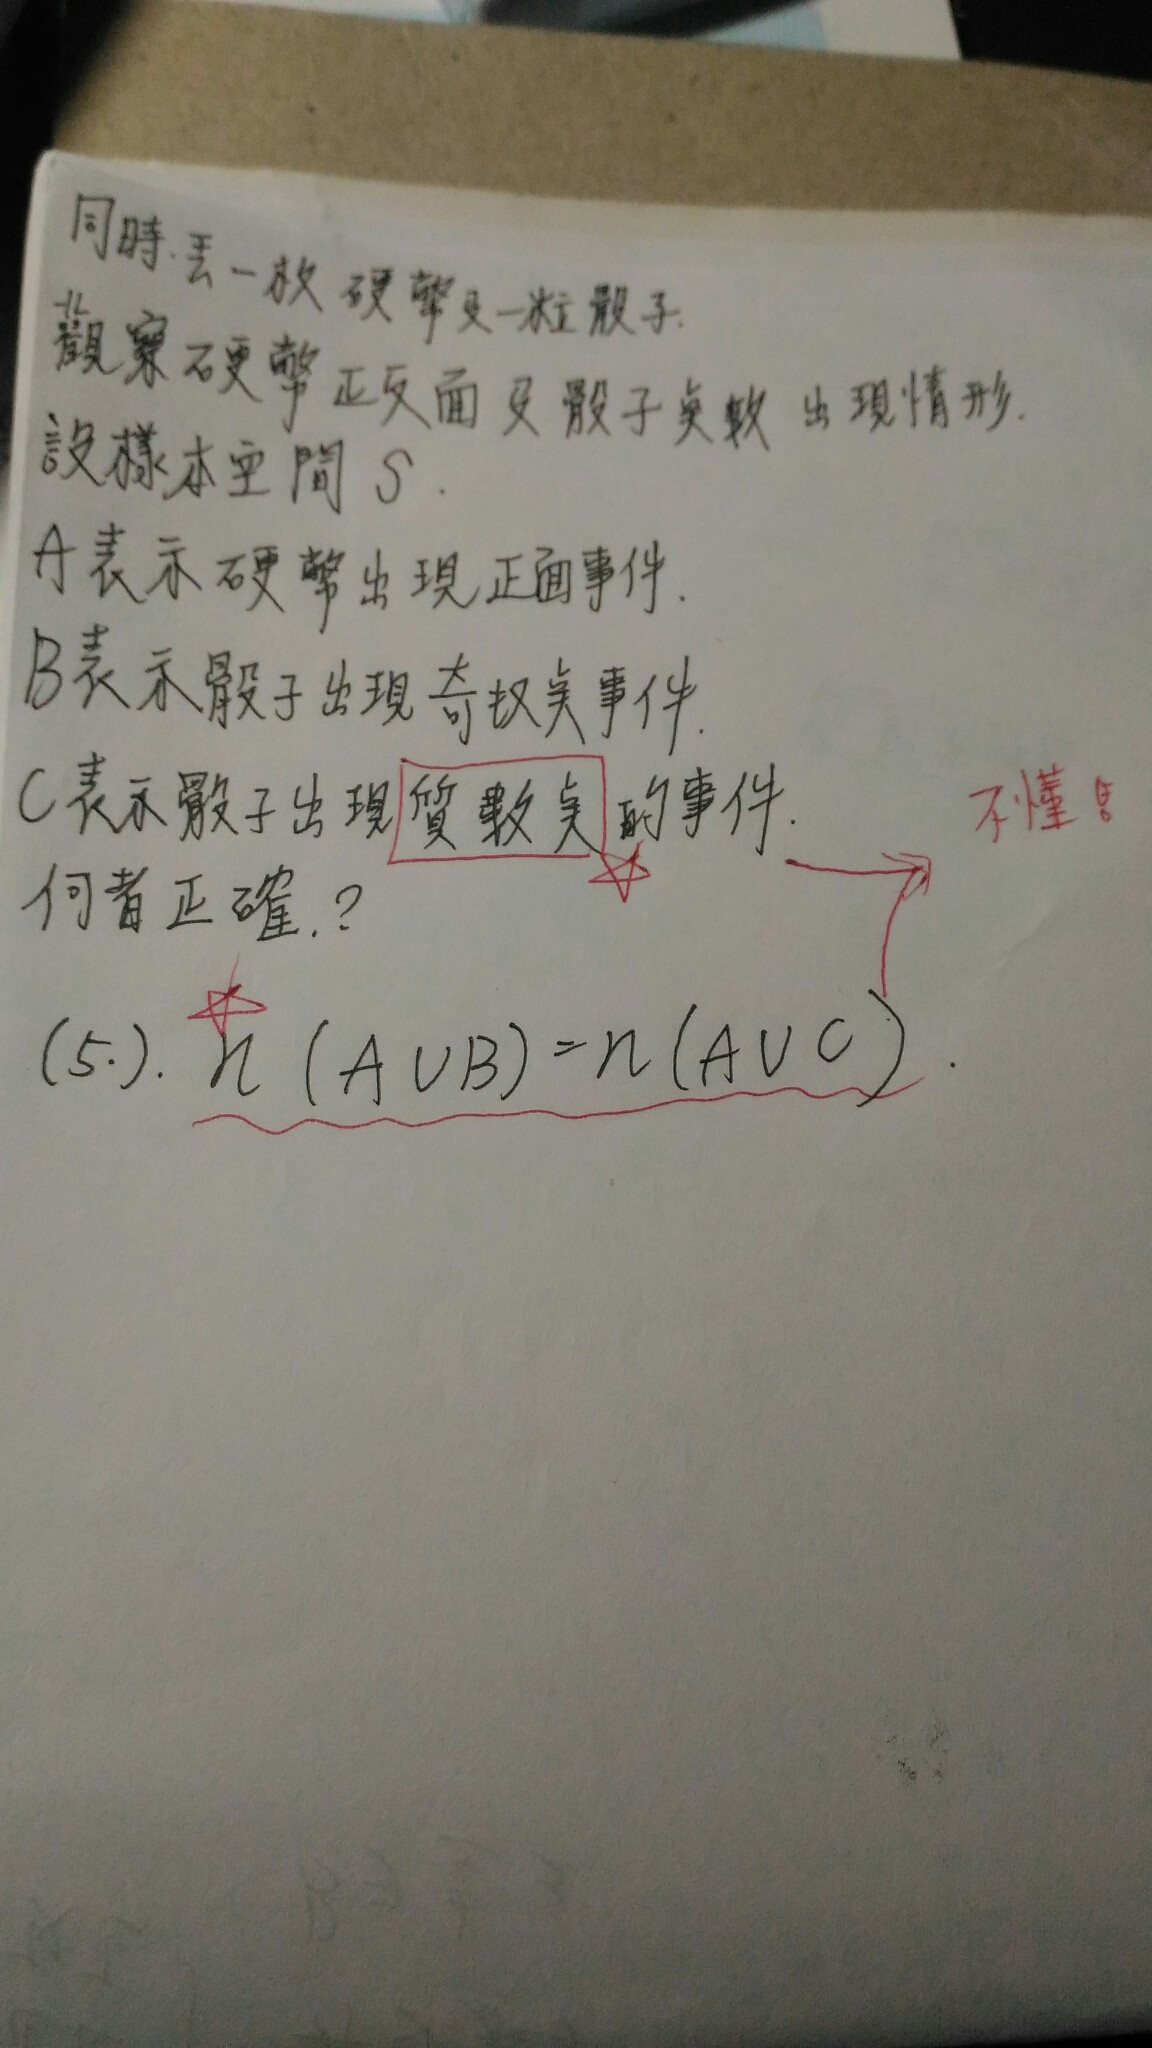 同時.丟一枚硬幣及一粒骰子.
觀察硬幣正反面及骰子點數出現情形.
設樣本空間 S.
A表示硬幣出現正面事件.
B表示骰子出現奇數點事件.
C表示骰子出現質數點的事件. 不懂!
何者正確.?
(5.). n(A∪B)=n(A∪C).